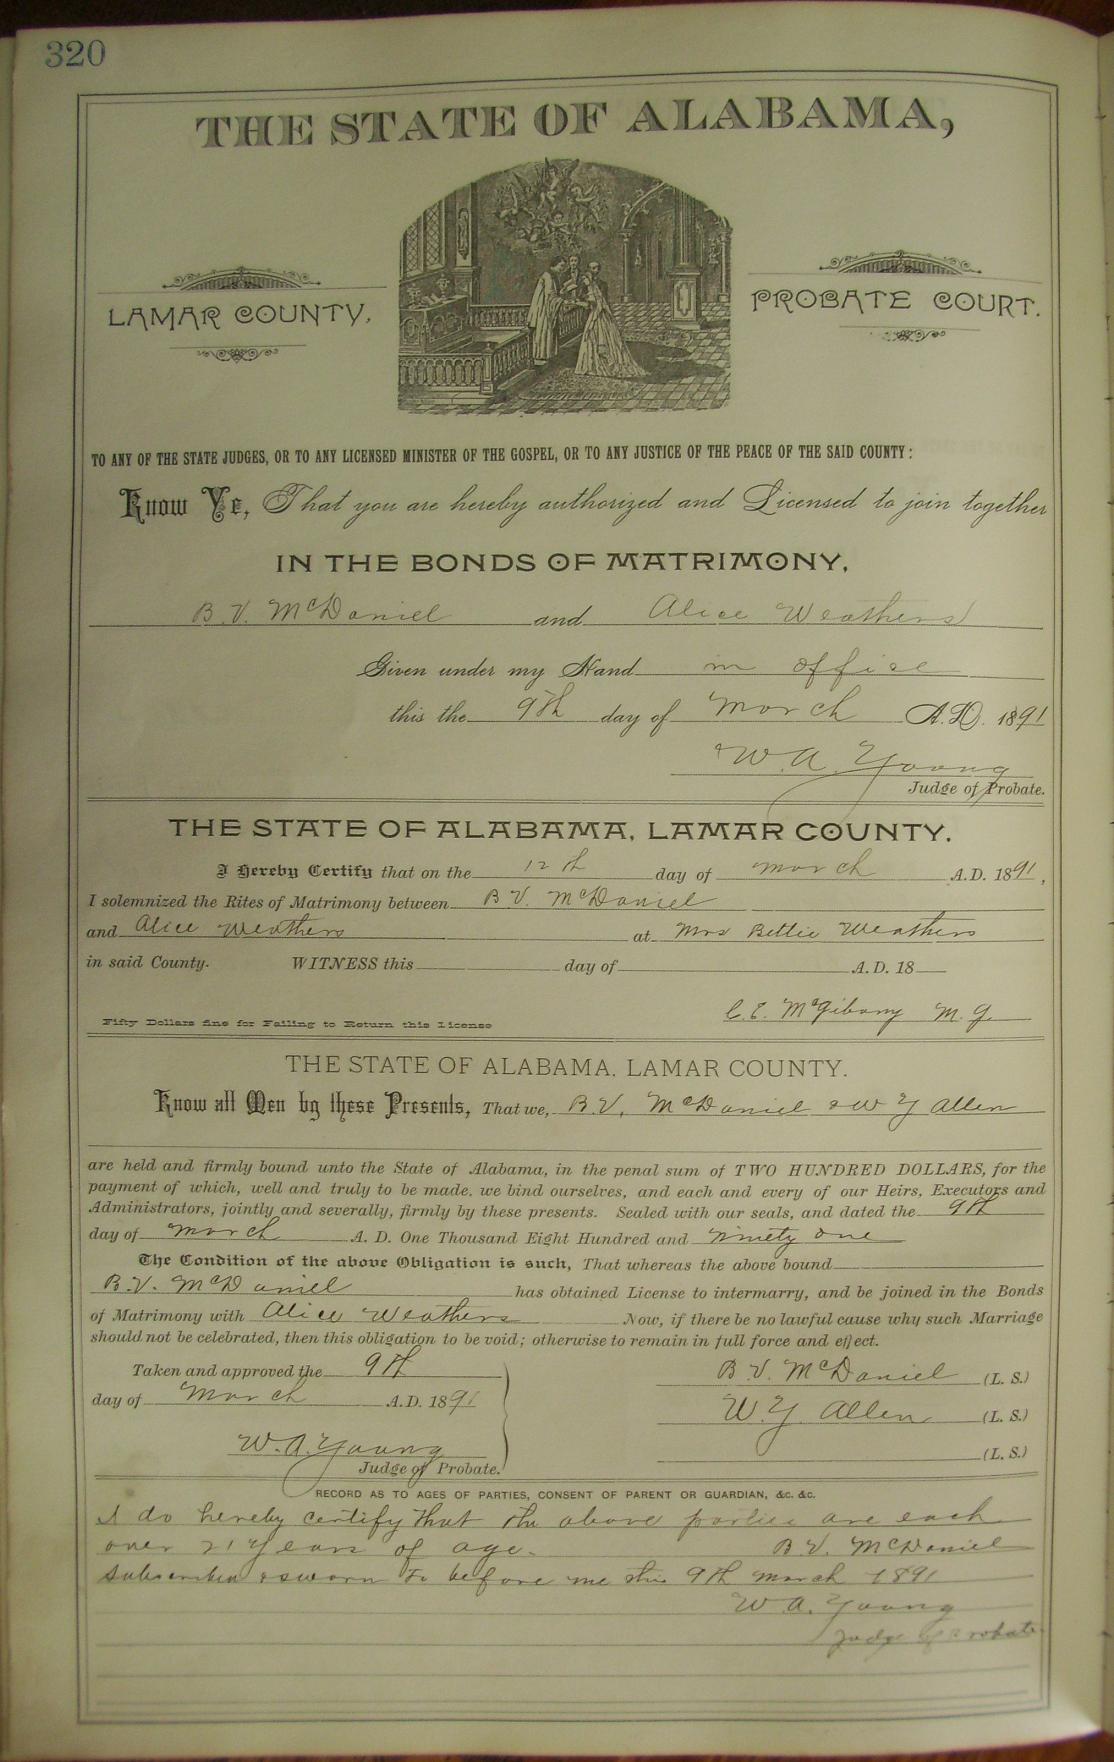 320
THE STATE OF ALABAMA,
LAMAR COUNTY,
PROBATE COURT.
TO ANY OF THE STATE JUDGES, OR TO ANY LICENSED MINISTER OF THE GOSPEL, OR TO ANY JUSTICE OF THE PEACE OF THE SAID COUNTY:
Know Ye, That you are hereby authorized and Licensed to join together
IN THE BONDS OF MATRIMONY,
B. V. McDaniel and Alice Weathers
Given under my Hand in office
this the 9th day of March A.D. 1891
W. A. Young
Judge of Probate.
THE STATE OF ALABAMA, LAMAR COUNTY.
I Hereby Certify that on the 12th day of March A.D. 1891,
I solemnized the Rites of Matrimony between B V. McDaniel
and Alice Weathers at Mrs Bettie Weathers
in said County. WITNESS this day of A.D. 18
C. E. McGibony M. G.
Fifty Dollars fine for Failing to Return this License
THE STATE OF ALABAMA. LAMAR COUNTY.
Know all Men by these Presents, That we, B. V. McDaniel & W Y Allen
are held and firmly bound unto the State of Alabama, in the penal sum of TWO HUNDRED DOLLARS, for the
payment of which, well and truly to be made. we bind ourselves, and each and every of our Heirs, Executors and
Administrators, jointly and severally, firmly by these presents. Sealed with our seals, and dated the 9th
day of March A. D. One Thousand Eight Hundred and ninety one
The Condition of the above Obligation is such, That whereas the above bound
B. V. McDaniel has obtained License to intermarry, and be joined in the Bonds
of Matrimony with Alice Weathers Now, if there be no lawful cause why such Marriage
should not be celebrated, then this obligation to be void; otherwise to remain in full force and effect.
Taken and approved the 9th
day of March A.D. 1891
W. A. Young
Judge of Probate.
B. V. McDaniel (L. S.)
W. Y. Allen (L. S.)
(L. S.)
RECORD AS TO AGES OF PARTIES, CONSENT OF PARENT OR GUARDIAN, &c. &c.
I do hereby certify that the above parties are each
over 21 years of age. B. V. McDaniel
Subscribed & sworn to before me this 9th March 1891
W A. Young
Judge of Probate